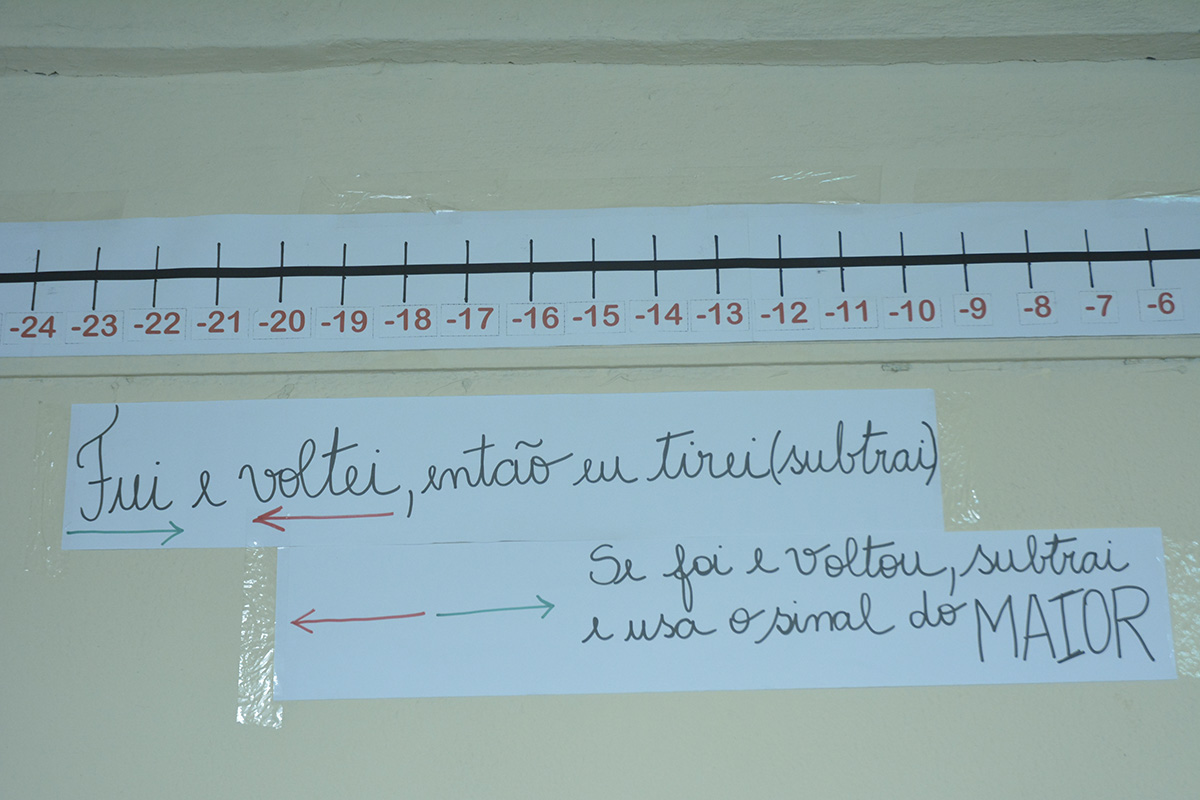 -24 -23 -22 -21 -20 -19 -18 -17 -16 -15 -14 -13 -12 -11 -10 -9 -8 -7 -6
Fui e voltei, então eu tirei (subtrai)
Se foi e voltou, subtrai
e usa o sinal do MAIOR